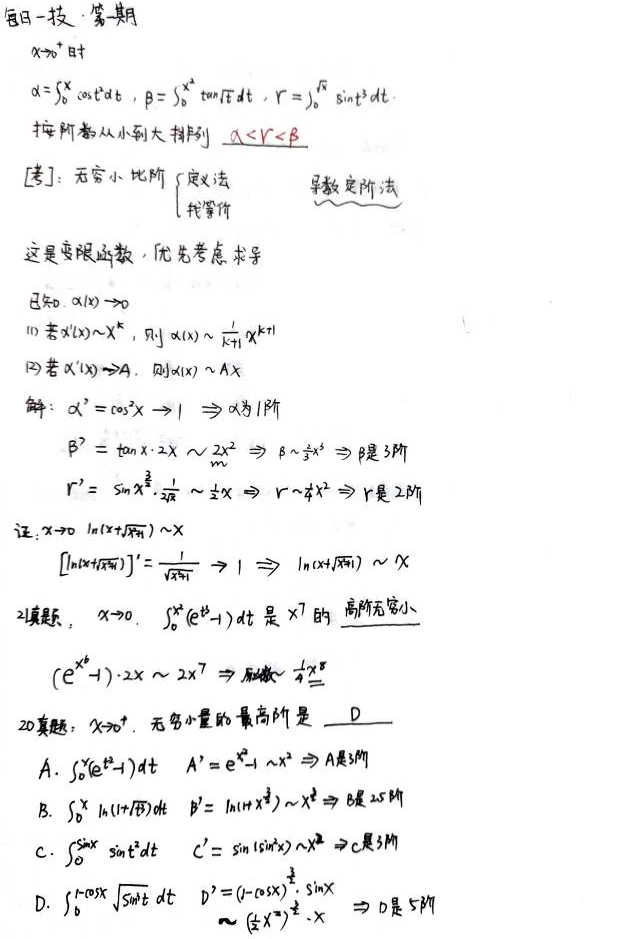 每日一技·第一期
x→0⁺时
α=∫₀^x cost²dt , β=∫₀^{x²} tan√t dt , γ=∫₀^{√x} sint³dt.
按阶数从小到大排列 α<γ<β
[考]: 无穷小比阶 { 定义法 导数定阶法
找等价
这是变限函数, 优先考虑求导
已知. α(x)→0
(1) 若α'(x)~x^k , 则 α(x) ~ 1/(k+1) x^{k+1}
(2) 若α'(x)→A. 则α(x) ~ Ax
解: α' = cos²x → 1 ⇒ α为1阶
β' = tanx·2x ~ 2x² ⇒ β~2/3x³ ⇒ β是3阶
γ' = sin x^{3/2}·1/(2√x) ~ 1/2x ⇒ γ~1/4x² ⇒ γ是2阶
证: x→0 ln(x+√(x²+1)) ~ x
[ln(x+√(x²+1))]' = 1/√(x²+1) → 1 ⇒ ln(x+√(x²+1)) ~ x
21真题: x→0. ∫₀^{x²}(e^{t³}-1)dt 是 x⁷ 的 高阶无穷小
(e^{x⁶}-1)·2x ~ 2x⁷ ⇒ 原函数~ 1/4x⁸
20真题: x→0⁺. 无穷小量的最高阶是 D
A. ∫₀^x(e^{t²}-1)dt A' = e^{x²}-1 ~x² ⇒ A是3阶
B. ∫₀^x ln(1+√t³)dt B' = ln(1+x^{3/2})~x^{3/2} ⇒ B是2.5阶
C. ∫₀^{sinx} sint²dt C' = sin(sin²x)~x² ⇒ C是3阶
D. ∫₀^{1-cosx} √(sin³t) dt D' = (1-cosx)^{3/2}·sinx
~ (1/2x²)^{3/2}·x ⇒ D是5阶